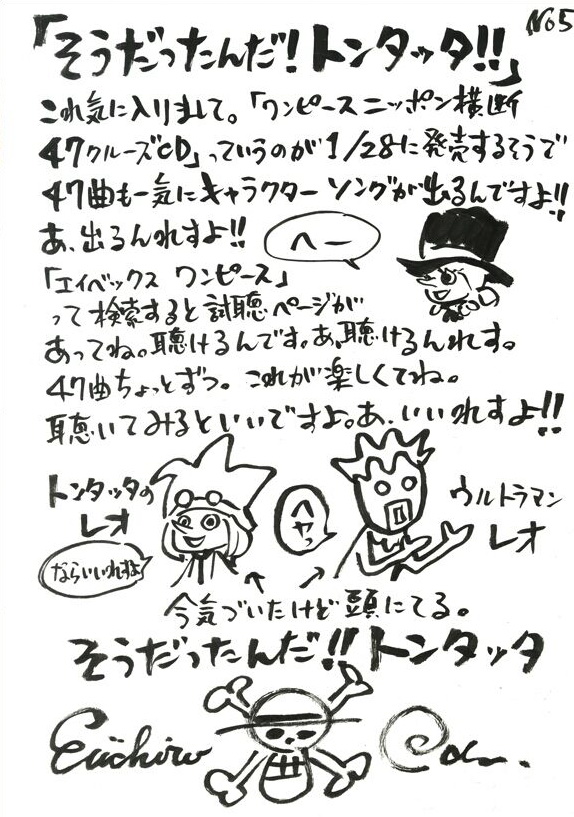 No5
「そうだったんだ!トンタッタ!!」
これ気に入りまして。「ワンピースニッポン横断
47クルーズCD」っていうのが1/28に発売するそうで
47曲も一気にキャラクターソングが出るんですよ!!
あ、出るんれすよ!!
へー
「エイベックス ワンピース」
って検索すると試聴ページが
あってね。聴けるんです。あ、聴けるんれす。
47曲ちょっとずつ。これが楽しくてね。
聴いてみるといいですよ。あ、いいれすよ!!
トンタッタの
レオ
ならいいれすよ
ヘヤッ
ウルトラマン
レオ
今気づいたけど頭にてる。
そうだったんだ!!トンタッタ
Eiichiro Oda.